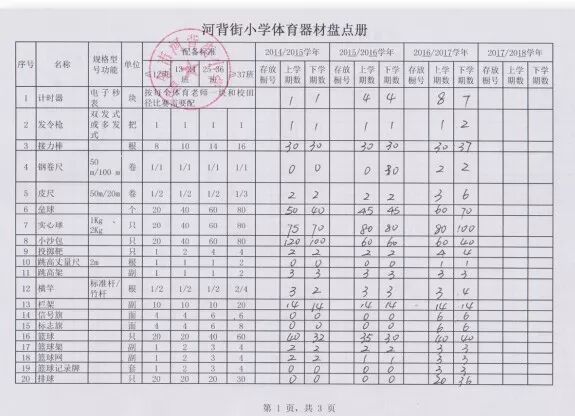 河背街小学体育器材盘点册
序号 名称 规格型号功能 单位 配备标准 2014/2015学年 2015/2016学年 2016/2017学年 2017/2018学年
25-36班 ≥37班 存放橱号 上学期数 下学期数 存放橱号 上学期数 下学期数 存放橱号 上学期数 下学期数 存放橱号 上学期数 下学期数
1 计时器 电子秒表 块 按每个体育老师一块和校田径比赛需要配 1 1 4 4 8 7
2 发令枪 双发式或多发式 把 1 1 1 1 1 1 1 1 1 2
3 接力棒 根 8 10 14 16 30 30 30 30 30 37
4 钢卷尺 50m/100m 卷 1/1 1/1 1/1 1/1 0 0 0 2 2
5 皮尺 50m/20m 卷 1/2 1/2 1/2 1/3 2 2 2 2 3 6
6 垒球 个 20 40 60 80 50 40 45 45 60 70
7 实心球 1Kg、2Kg 只 20 40 60 80 75 70 80 80 80 100
8 小沙包 只 20 40 60 80 120 100 60 60 60 40
9 投掷靶 只 1 2 4 4 2 2 2 2 4 4
10 跳高丈量尺 2m 根 1 1 1 2 0 0 0 0 1 1
11 跳高架 副 1 1 1 2 3 3 3 3 3 3
12 横竿 标准杆/竹杆 根 1/2 1/2 1/2 2/4 3 2 3 3 3 4
13 栏架 副 10 10 10 20 14 14 14 14 14 14
14 信号旗 面 4 4 6 6 0 0 0 0 6 6
15 标志旗 面 4 4 6 8 0 0 0 0 6 6
16 篮球 只 20 20 40 60 40 32 35 30 40
17 篮球架 副 1 2 3 4 2 2 2 2 3 3
18 篮球网 副 1 2 3 4 2 2 1 1 3 3
19 篮球记录牌 套 1 1 2 4 0 0 0 0 3 3
20 排球 只 20 20 20 30 0 0 0 0 20 36
第1页，共3页